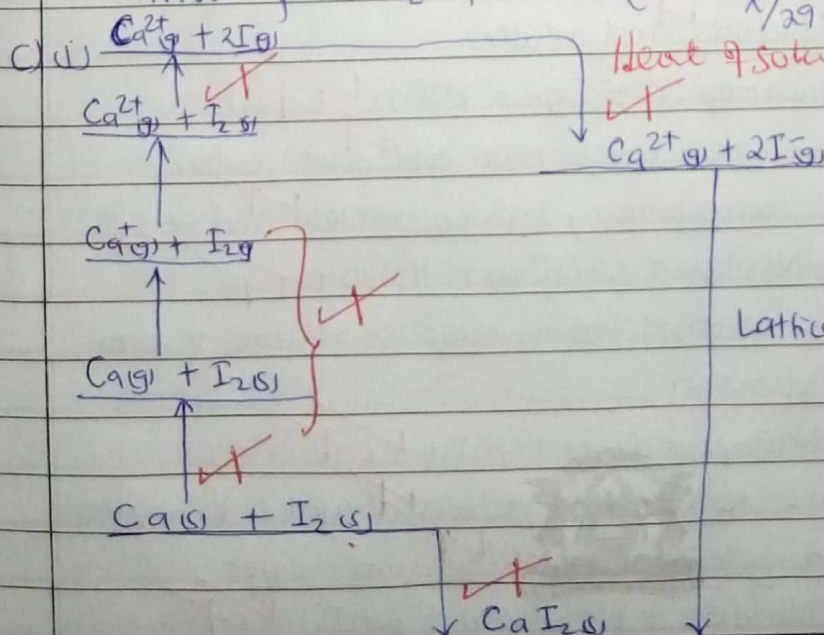 x/29
C) (i) Ca²⁺(g) + 2I(g)
Heat of
Ca²⁺(g) + I₂(s)
Ca²⁺(g) + 2I⁻(g)
Ca⁺(g) + I₂g
Lattic
Ca(g) + I₂(s)
Ca(s) + I₂(s)
CaI₂(s)